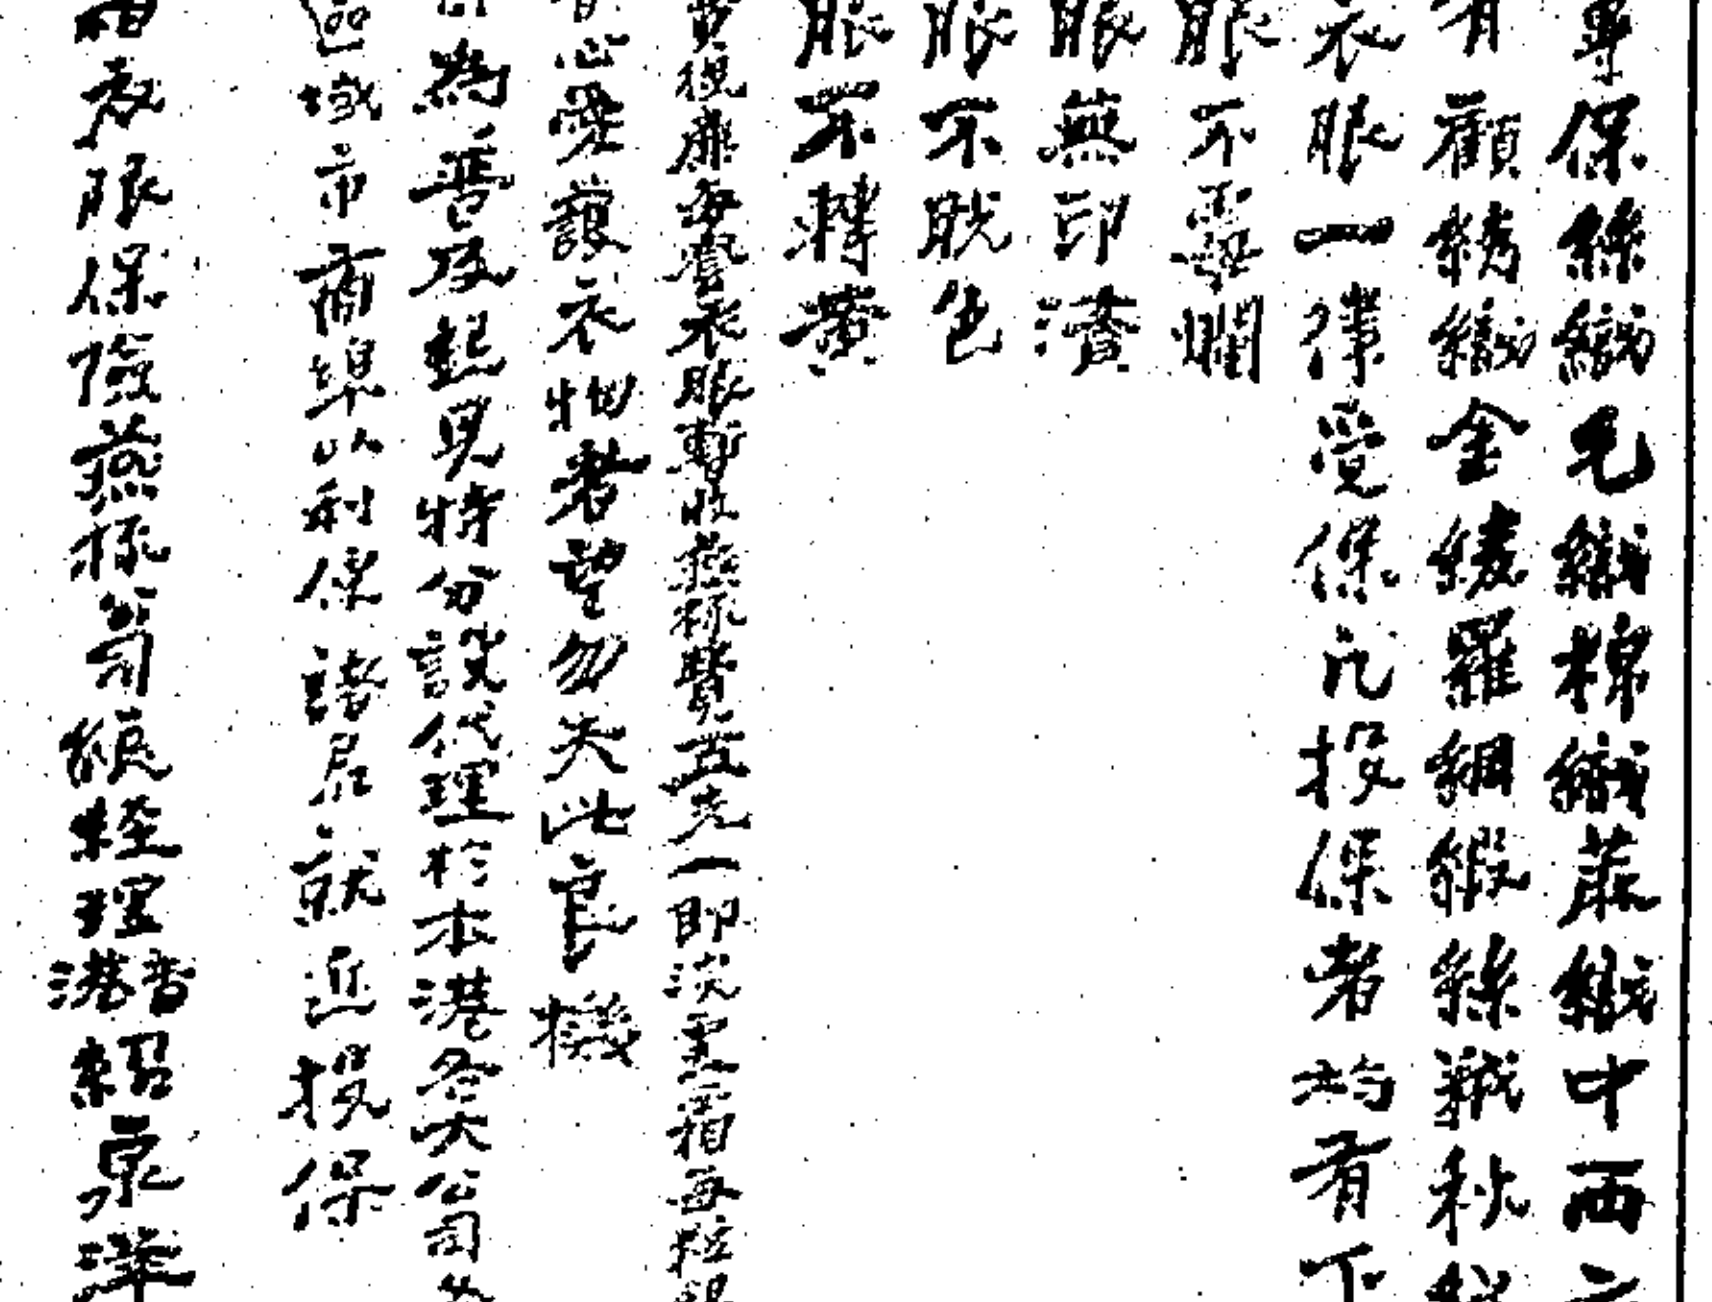 專保絲織毛織棉織蔴織中西
有顧綉織金綾羅綢緞絲絨秋
衣服一律受保凡投保者均有下
服不霉爛
服無印漬
服不脫色
服不轉黃
費視廉每套衣服暫收燕梳費五先一即
心愛護衣物者望勿失此良機
為普及起見特分設代理於本港各大公司
區域市商埠以利保諸君就近投保
衣服保險燕梳公司總經理香港紹泉洋